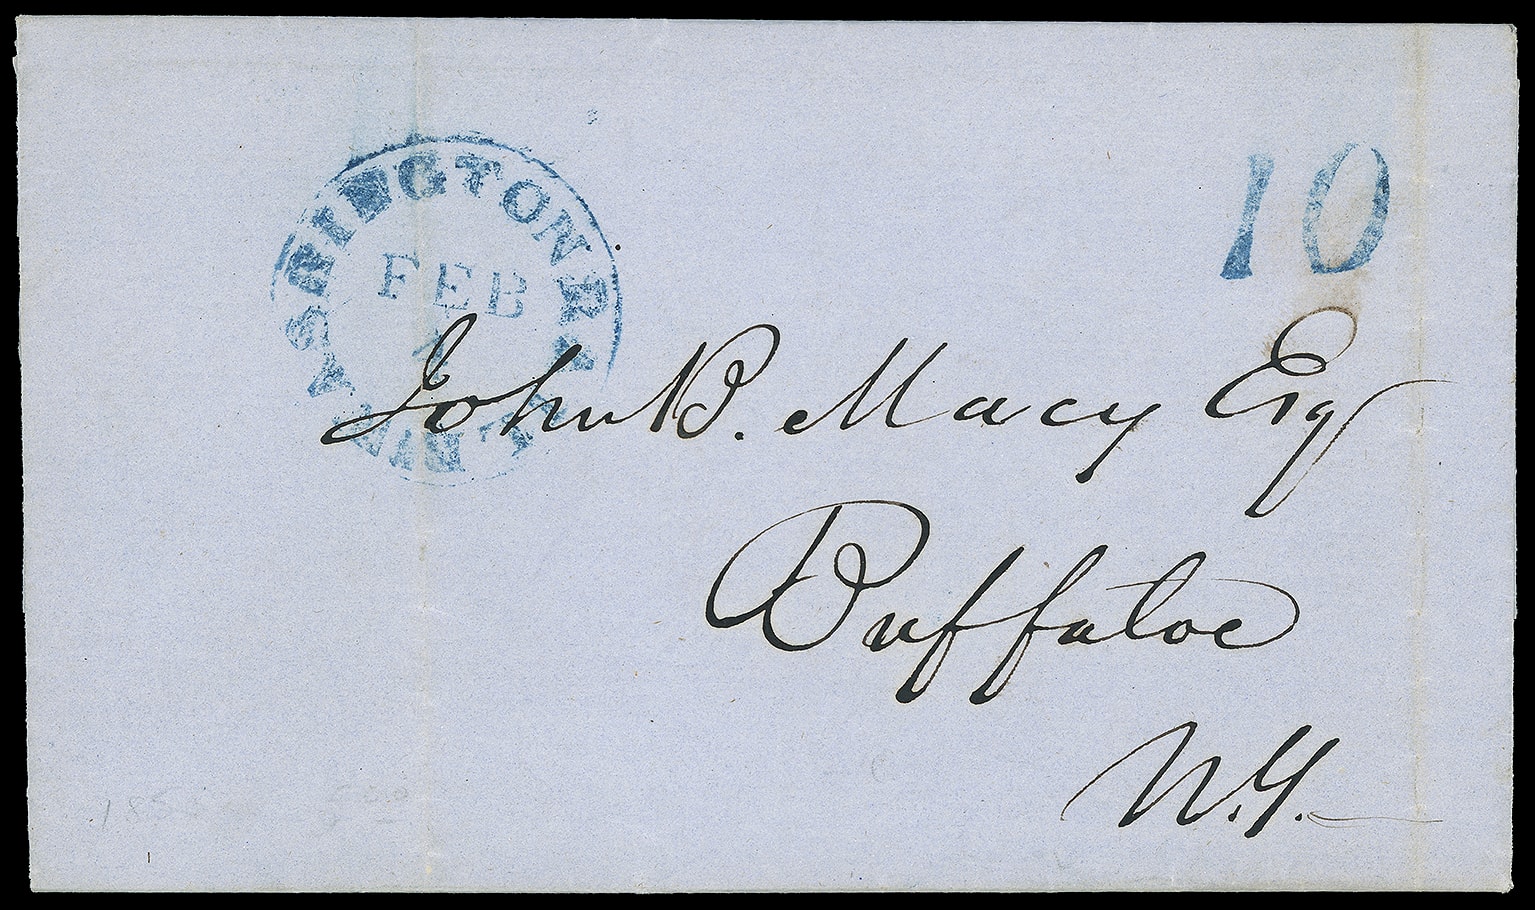 WASHINGTON R.R.
FEB
1
10
John B. Macy Esq
Buffaloe
N.Y.